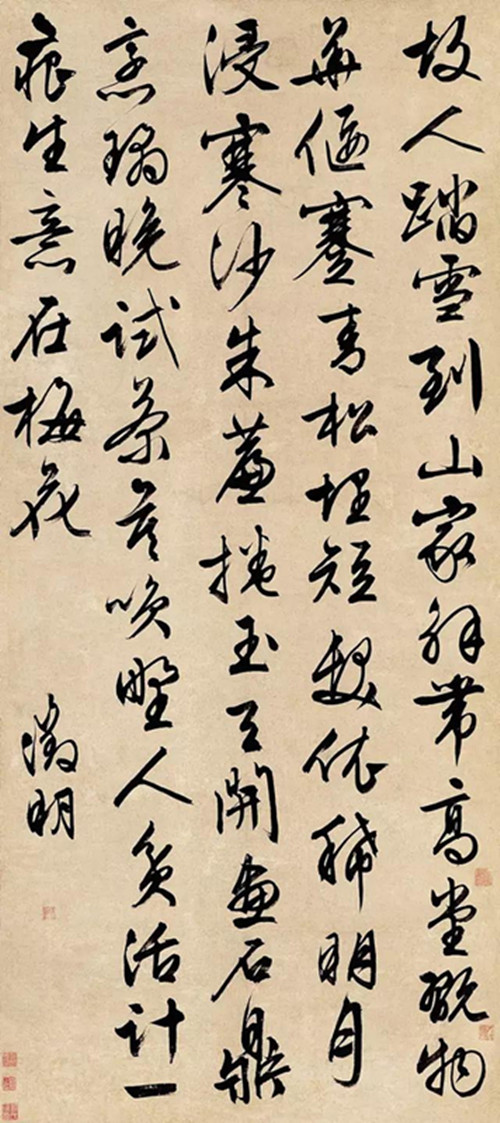 故人踏雪到山家解帶高堂翫物
華偃蹇青松埋短髮依稀明月
浸寒沙朱簾捲玉天開畫石鼎
烹瑤晚試茶莫咲野人貧活計一
痕生意在梅花
徵明